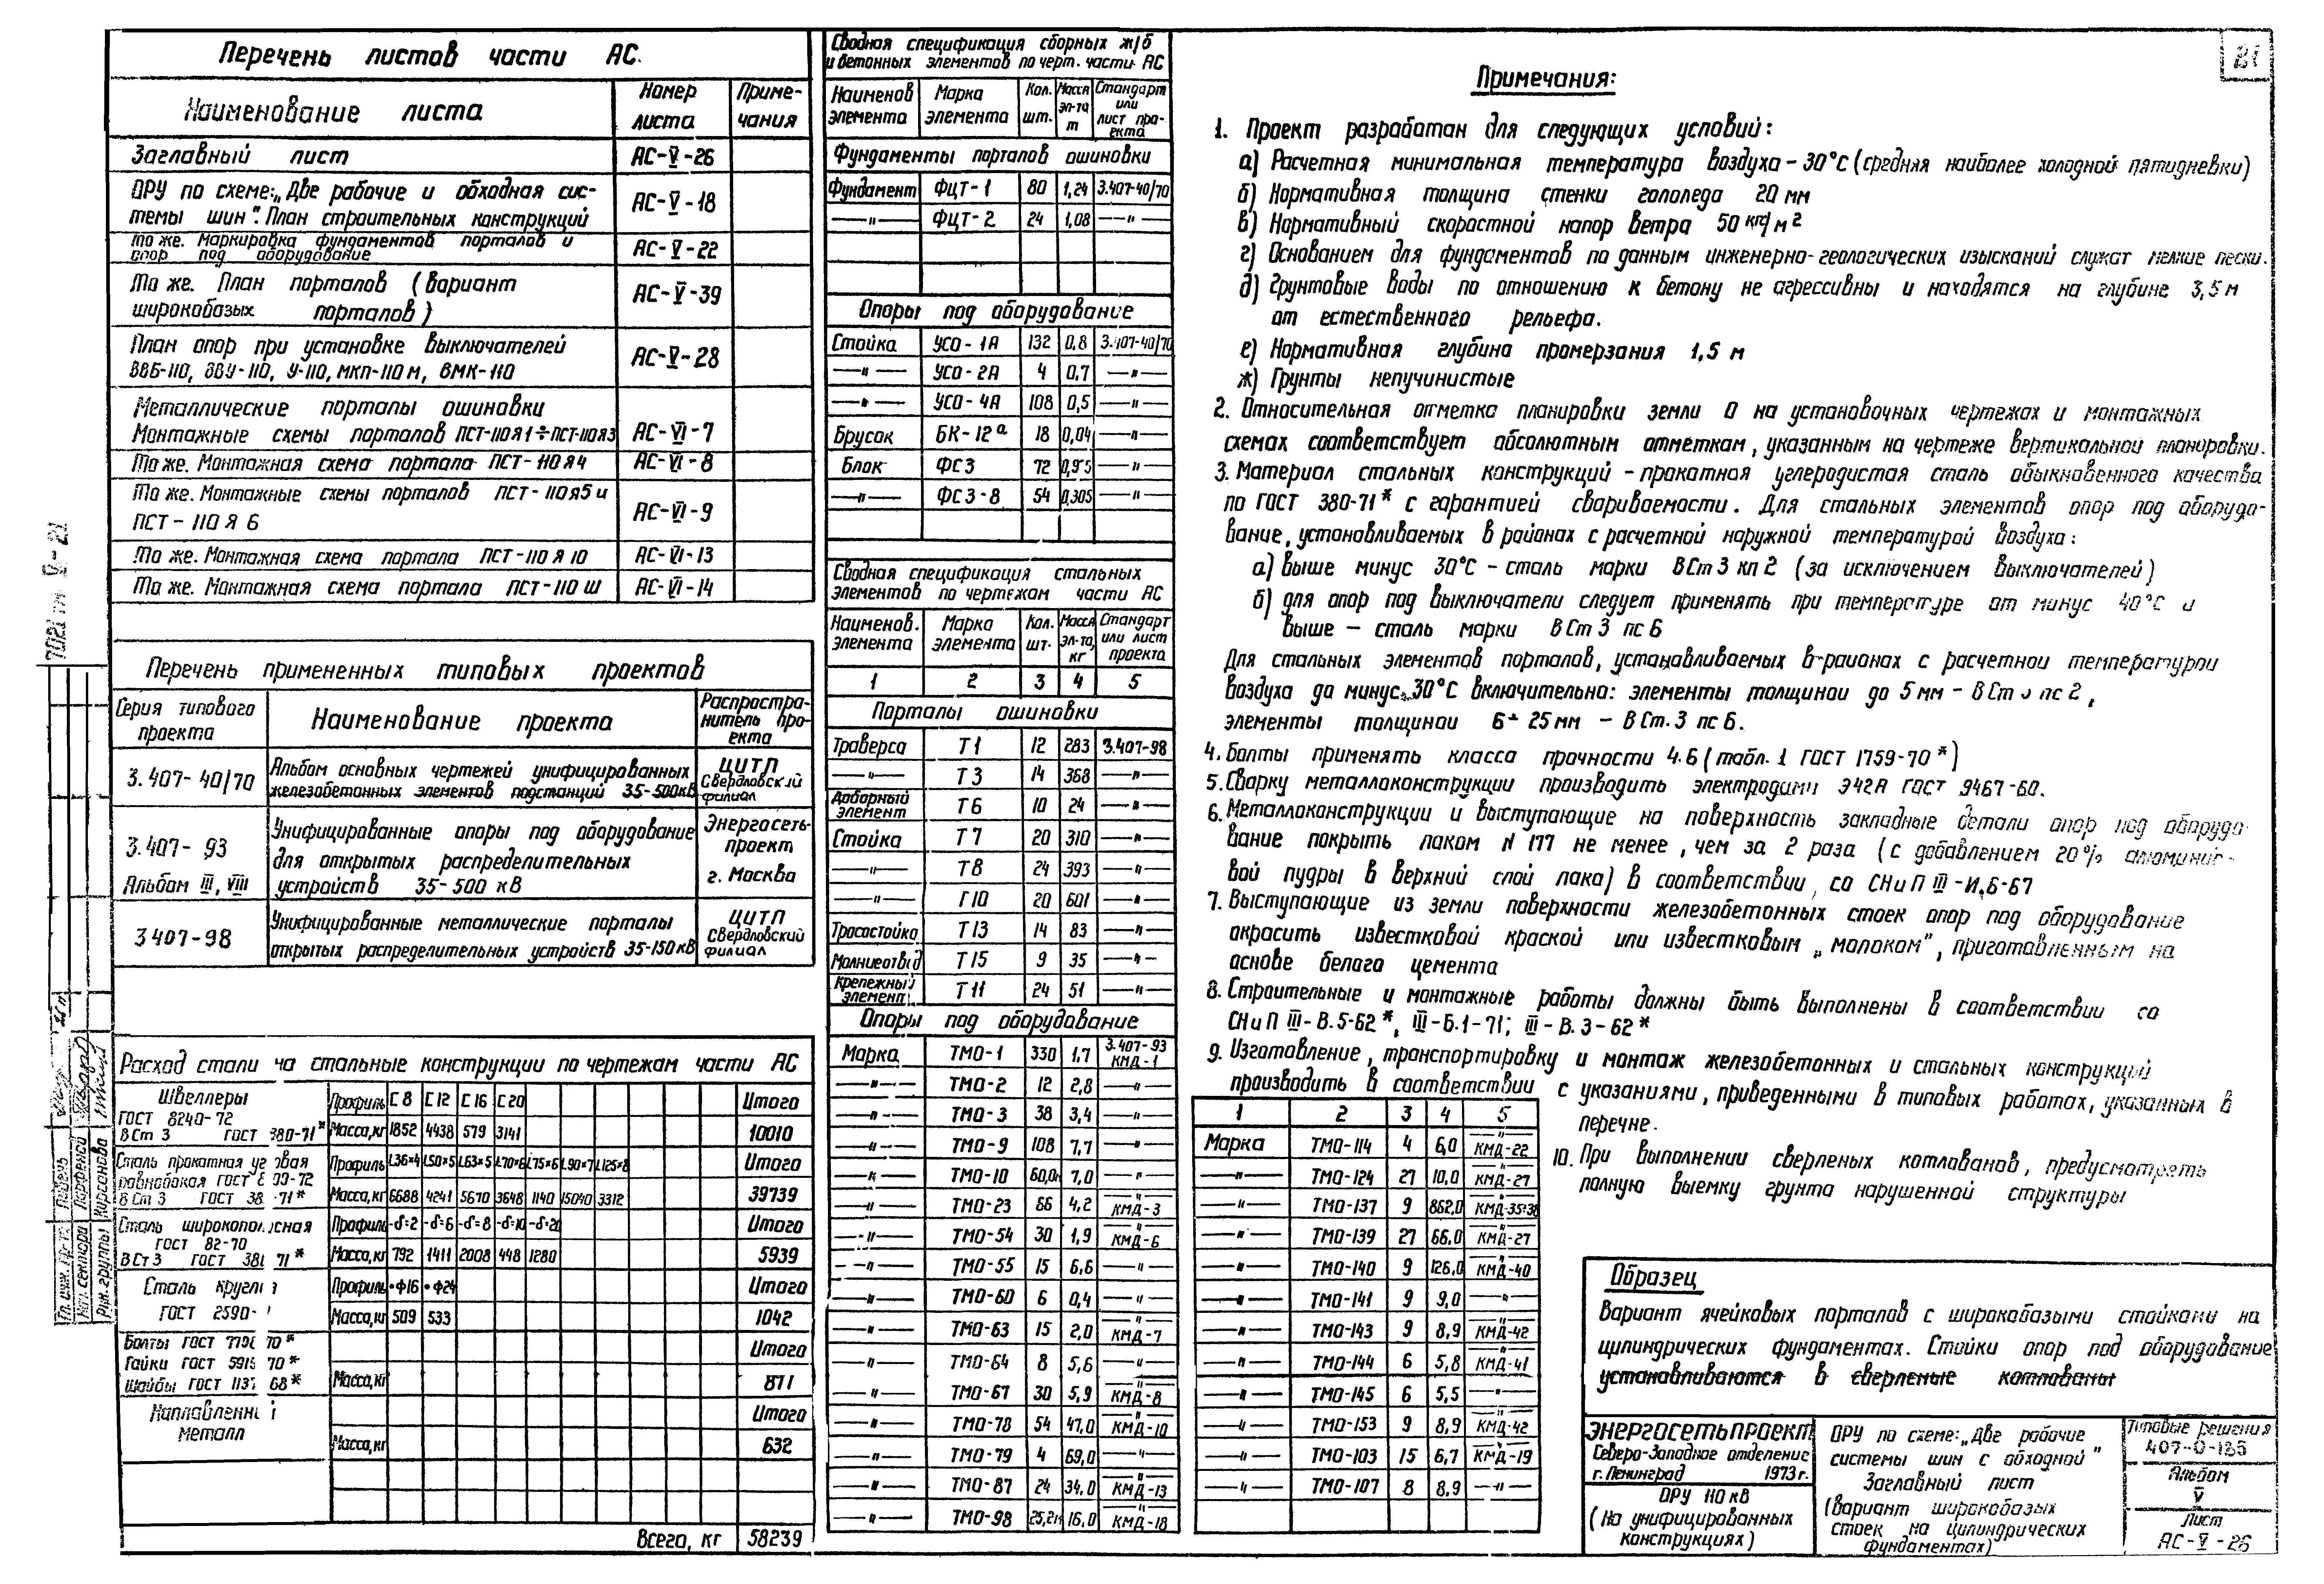 Перечень листов части АС.
Наименование листа | Номер листа | Приме-чания
Заглавный лист | АС-V-26
ОРУ по схеме: „Две рабочие и обходная сис-
темы шин". План строительных конструкций | АС-V-18
То же. Маркировка фундаментов порталов и
опор под оборудование | АС-V-22
То же. План порталов (вариант
широкобазых порталов) | АС-V-39
План опор при установке выключателей
ВВБ-110, ВВУ-110, У-110, МКП-110м, ВМК-110 | АС-V-28
Металлические порталы ошиновки
Монтажные схемы порталов ПСТ-110Я1÷ПСТ-110Я3 | АС-VI-7
То же. Монтажная схема портала ПСТ-110Я4 | АС-VI-8
То же. Монтажные схемы порталов ПСТ-110Я5 и
ПСТ-110Я6 | АС-VI-9
То же. Монтажная схема портала ПСТ-110Я10 | АС-VI-13
То же. Монтажная схема портала ПСТ-110Ш | АС-VI-14
Перечень примененных типовых проектов
Серия типового проекта | Наименование проекта | Распростра-нитель про-екта
3.407-40/70 | Альбом основных чертежей унифицированных
железобетонных элементов подстанций 35-500кВ | ЦИТП Свердловский филиал
3.407-93
Альбом III, VIII | Унифицированные опоры под оборудование
для открытых распределительных
устройств 35-500 кВ | Энергосеть-проект г. Москва
3 407-98 | Унифицированные металлические порталы
открытых распределительных устройств 35-150кВ | ЦИТП Свердловский филиал
Расход стали на стальные конструкции по чертежам части АС
Швеллеры ГОСТ 8240-72 ВСт 3 ГОСТ 380-71*
Профиль | С8 | С12 | С16 | С20 | Итого
Масса, кг | 1852 | 4438 | 579 | 3141 | 10010
Сталь прокатная угловая
равнобокая
ВСт 3
Профиль | L36×4 | L50×5 | L63×5 | L70×6 | L75×6 | L90×7 | L125×8 | Итого
Масса, кг | 6688 | 4241 | 5670 | 3648 | 1140 | 15040 | 3312 | 39739
Сталь широкополосная
ГОСТ 82-70
ВСт 3
Профиль | -δ=2 | -δ=6 | -δ=8 | -δ=10 | -δ=20 | Итого
Масса, кг | 792 | 1411 | 2008 | 448 | 1280 | 5939
Сталь круглая
ГОСТ 2590-
Профиль | •Ф16 | •Ф24 | Итого
Масса, кг | 509 | 533 | 1042
Болты ГОСТ 70*
Гайки ГОСТ 70*
Шайбы ГОСТ 68*
Масса, кг | Итого | 871
Наплавленный
металл
Масса, кг | Итого | 632
Всего, кг | 58239
Сводная спецификация сборных ж/б
и бетонных элементов по черт. части АС
Наименов элемента | Марка элемента | Кол. шт. | Масса эл-та т | Стандарт или лист про-екта
Фундаменты порталов ошиновки
Фундамент | ФЦТ-1 | 80 | 1,24 | 3.407-40/70
—„— | ФЦТ-2 | 24 | 1,08 | —„—
Опоры под оборудование
Стойка | УСО-1А | 132 | 0,8 | 3.407-40/70
—„— | УСО-2А | 4 | 0,7 | —„—
—„— | УСО-4А | 108 | 0,5 | —„—
Брусок | БК-12а | 18 | 0,04 | —„—
Блок | ФС3 | 72 | —„—
—„— | ФС3-8 | 54 | 0,305 | —„—
Сводная спецификация стальных
элементов по чертежам части АС
Наименов. элемента | Марка элемента | Кол. шт. | Масса эл-та, кг | Стандарт или лист проекта
1 | 2 | 3 | 4 | 5
Порталы ошиновки
Траверса | Т1 | 12 | 283 | 3.407-98
—„— | Т3 | 14 | 368 | —„—
Доборный элемент | Т6 | 10 | 24 | —„—
Стойка | Т7 | 20 | 310 | —„—
—„— | Т8 | 24 | 393 | —„—
—„— | Т10 | 20 | 601 | —„—
Тросостойка | Т13 | 14 | 83 | —„—
Молниеотвод | Т15 | 9 | 35 | —„—
Крепежный элемент | Т11 | 24 | 51 | —„—
Опоры под оборудование
Марка | ТМО-1 | 330 | 1,7 | 3.407-93 КМД-1
—„— | ТМО-2 | 12 | 2,8 | —„—
—„— | ТМО-3 | 38 | 3,4 | —„—
—„— | ТМО-9 | 108 | 7,7 | —„—
—„— | ТМО-10 | 60,0м | 7,0 | —„—
—„— | ТМО-23 | 66 | 4,2 | —„— КМД-3
—„— | ТМО-54 | 30 | 1,9 | —„— КМД-6
—„— | ТМО-55 | 15 | 6,6 | —„—
—„— | ТМО-60 | 6 | 0,4 | —„—
—„— | ТМО-63 | 15 | 2,0 | —„— КМД-7
—„— | ТМО-64 | 8 | 5,6 | —„—
—„— | ТМО-67 | 30 | 5,9 | —„— КМД-8
—„— | ТМО-78 | 54 | 47,0 | —„— КМД-10
—„— | ТМО-79 | 4 | 69,0 | —„—
—„— | ТМО-87 | 24 | 34,0 | —„— КМД-13
—„— | ТМО-98 | 25,2м | 16,0 | —„— КМД-18
21
Примечания:
1. Проект разработан для следующих условий:
а) Расчетная минимальная температура воздуха -30°С (средняя наиболее холодной пятидневки)
б) Нормативная толщина стенки гололеда 20 мм
в) Нормативный скоростной напор ветра 50 кг/м²
г) Основанием для фундаментов по данным инженерно-геологических изысканий служат мелкие пески.
д) Грунтовые воды по отношению к бетону не агрессивны и находятся на глубине 3,5 м
от естественного рельефа.
е) Нормативная глубина промерзания 1,5 м
ж) Грунты непучинистые
2. Относительная отметка планировки земли 0 на установочных чертежах и монтажных
схемах соответствует абсолютным отметкам, указанным на чертеже вертикальной планировки.
3. Материал стальных конструкций - прокатная углеродистая сталь обыкновенного качества
по ГОСТ 380-71* с гарантией свариваемости. Для стальных элементов опор под оборудо-
вание, устанавливаемых в районах с расчетной наружной температурой воздуха:
а) Выше минус 30°С - сталь марки ВСт 3 кп 2 (за исключением выключателей)
б) для опор под выключатели следует применять при температуре от минус 40°С и
выше — сталь марки ВСт 3 пс 6
Для стальных элементов порталов, устанавливаемых в районах с расчетной температурой
воздуха до минус 30°С включительно: элементы толщиной до 5 мм - ВСт 3 пс 2,
элементы толщиной 6÷25 мм - ВСт. 3 пс 6.
4. Болты применять класса прочности 4.6 (табл. 1 ГОСТ 1759-70*)
5. Сварку металлоконструкции производить электродами Э42А ГОСТ 9467-60.
6. Металлоконструкции и выступающие на поверхность закладные детали опор под оборудо-
вание покрыть лаком N 177 не менее, чем за 2 раза (с добавлением 20% алюминие-
вой пудры в верхний слой лака) в соответствии со СНиП III-И.6-67
7. Выступающие из земли поверхности железобетонных стоек опор под оборудование
окрасить известковой краской или известковым „молоком", приготовленным на
основе белого цемента
8. Строительные и монтажные работы должны быть выполнены в соответствии со
СНиП III-В.5-62*, III-Б.1-71; III-В.3-62*
9. Изготовление, транспортировку и монтаж железобетонных и стальных конструкций
производить в соответствии с указаниями, приведенными в типовых работах, указанных в
перечне.
10. При выполнении сверленых котлованов, предусмотреть
полную выемку грунта нарушенной структуры
1 | 2 | 3 | 4 | 5
Марка | ТМО-114 | 4 | 6,0 | —„— КМД-22
—„— | ТМО-124 | 27 | 10,0 | —„— КМД-27
—„— | ТМО-137 | 9 | 862,0 | —„— КМД-35÷38
—„— | ТМО-139 | 27 | 66,0 | —„— КМД-27
—„— | ТМО-140 | 9 | 126,0 | —„— КМД-40
—„— | ТМО-141 | 9 | 9,0 | —„—
—„— | ТМО-143 | 9 | 8,9 | —„— КМД-42
—„— | ТМО-144 | 6 | 5,8 | —„— КМД-41
—„— | ТМО-145 | 6 | 5,5 | —„—
—„— | ТМО-153 | 9 | 8,9 | —„— КМД-42
—„— | ТМО-103 | 15 | 6,7 | —„— КМД-19
—„— | ТМО-107 | 8 | 8,9 | —„—
Образец
Вариант ячейковых порталов с широкобазыми стойками на
цилиндрических фундаментах. Стойки опор под оборудование
устанавливаются в сверленые котлованы
ЭНЕРГОСЕТЬПРОЕКТ
Северо-Западное отделение
г. Ленинград 1973 г.
ОРУ 110 кВ
(На унифицированных
конструкциях)
ОРУ по схеме: „Две рабочие
системы шин с обходной"
Заглавный лист
(Вариант широкобазых
стоек на цилиндрических
фундаментах)
Типовые решения
407-0-
Альбом
V
Лист
АС-V-26
Нач. сектора
Рук. группы
Корсакова